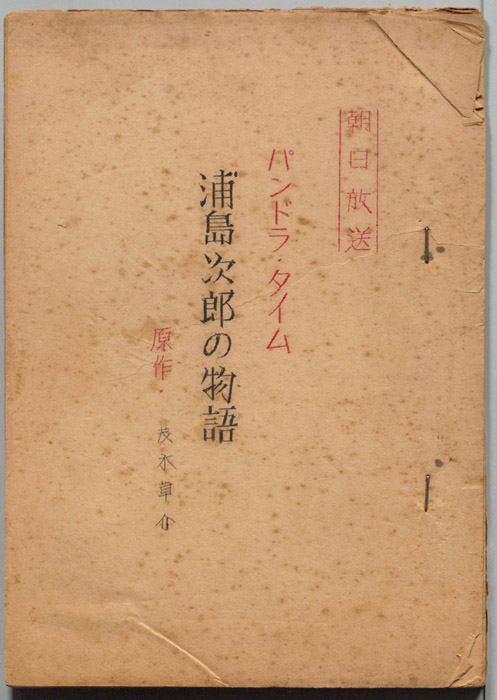 朝日放送
パンドラ・タイム
浦島次郎の物語
原作・
茂木草介